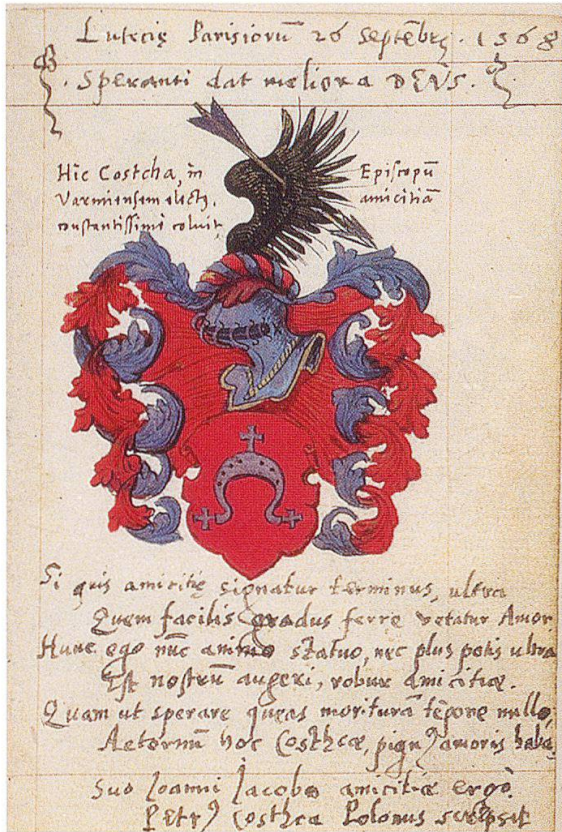 Lutecię Parisiorũ 26 Septẽbrꝭ. 1568
. Speranti dat meliora DEVS.
Hic Costcha, in Episcopũ
Varmiensem elictꝰ, amicitiã
constantissimi coluit
Si quis amicitię signatur terminus, ultra
Quem facilis gradus ferre vetatur Amor
Hunc ego nũc animo statuo, nec plus potis ultra
Est nostrũ augeri, robur amicitiæ.
Quam ut sperare queas moriturã tẽpore nullo,
Aeternũ hoc Costhcæ, pignꝰ amoris habe,
Suo Ioanni Iacobo amicitiæ ergò.
Petrꝰ Costhca Polonus scripsit